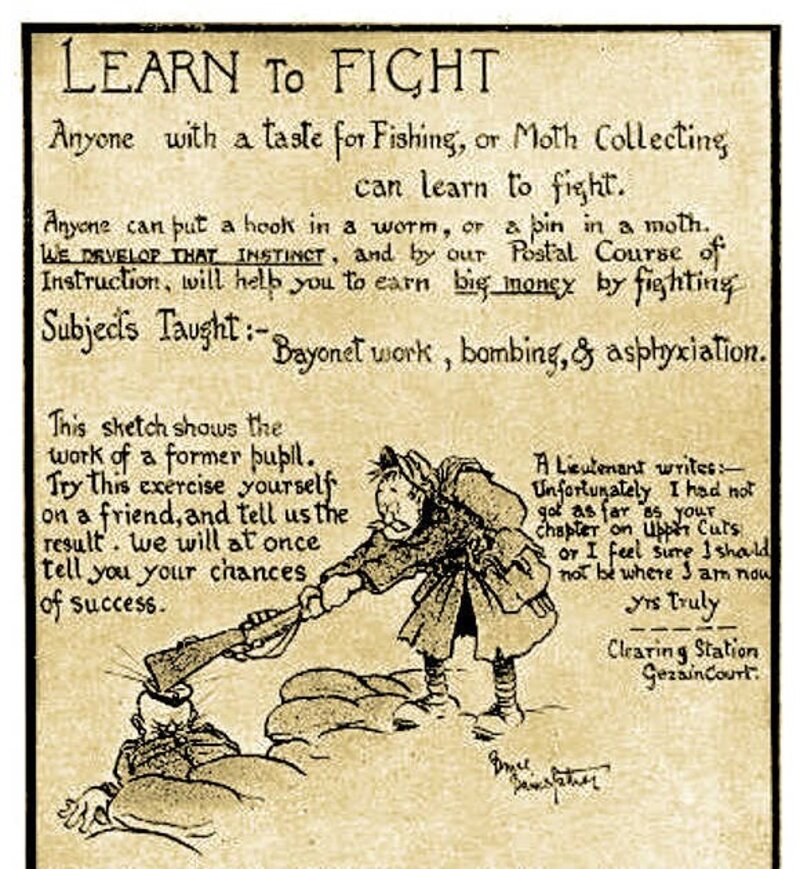 LEARN To FIGHT
Anyone with a taste for Fishing, or Moth Collecting
can learn to fight.
Anyone can put a hook in a worm, or a pin in a moth.
WE DEVELOP THAT INSTINCT, and by our Postal Course of
Instruction, will help you to earn big money by fighting
Subjects Taught:-
Bayonet work, bombing, & asphyxiation.
This sketch shows the
work of a former pupil.
Try this exercise yourself
on a friend, and tell us the
result. We will at once
tell you your chances
of success.
A Lieutenant writes:—
Unfortunately I had not
got as far as your
chapter on Upper Cuts
or I feel sure I should
not be where I am now
yrs truly
Clearing Station
GezainCourt.
Bruce
Bairnsfather